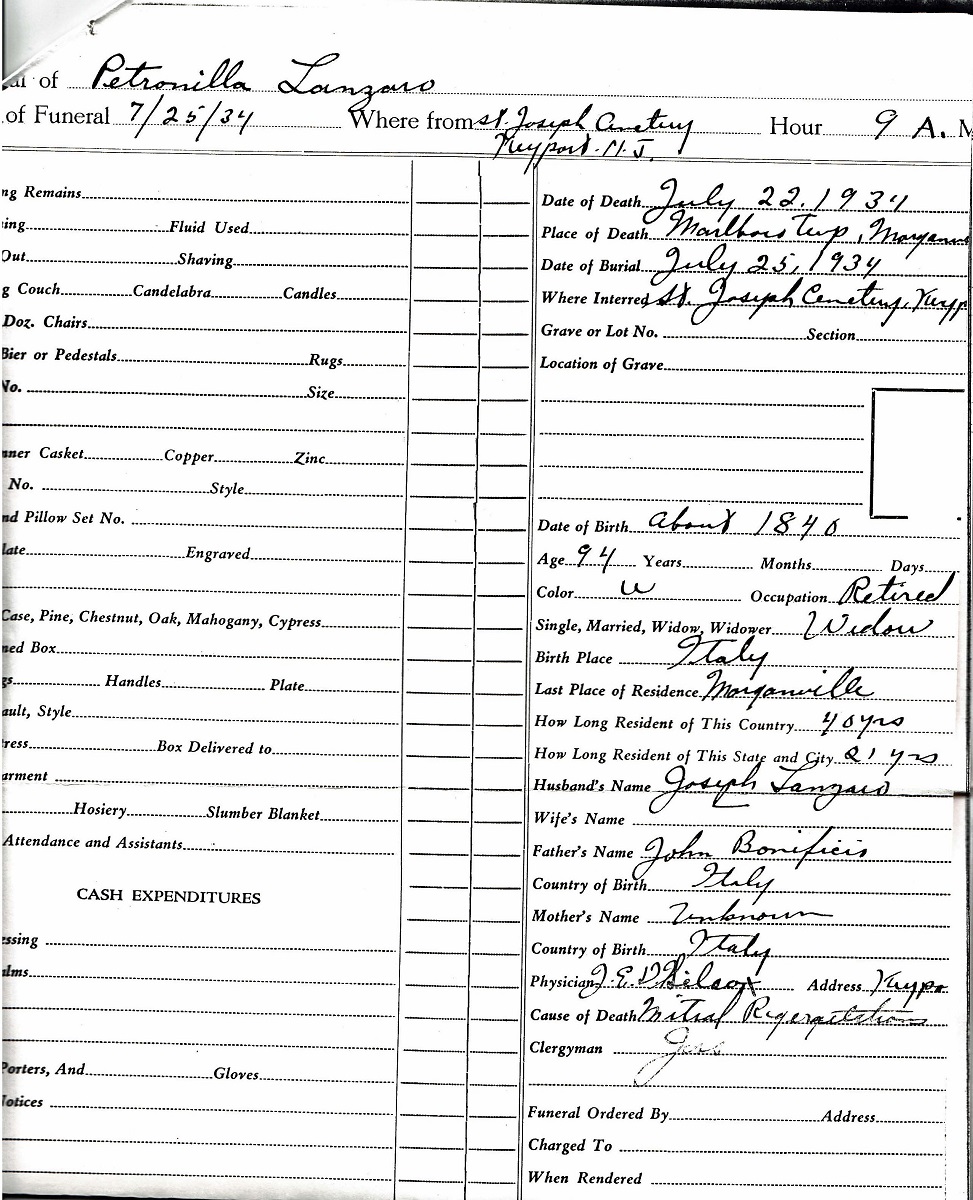 al of Petronilla Lanzaro
of Funeral 7/25/34 Where from St. Joseph Cemetery Hour 9 A. M
Keyport N.J.
ng Remains
ing Fluid Used
Out Shaving
g Couch Candelabra Candles
Doz. Chairs
Bier or Pedestals Rugs
No. Size
ner Casket Copper Zinc
No. Style
nd Pillow Set No.
late Engraved
Case, Pine, Chestnut, Oak, Mahogany, Cypress
ned Box
gs Handles Plate
ault, Style
ress Box Delivered to
arment
Hosiery Slumber Blanket
Attendance and Assistants
CASH EXPENDITURES
essing
alms
Porters, And Gloves
Notices
Date of Death July 22, 1934
Place of Death Marlboro Twp, Morganv
Date of Burial July 25, 1934
Where Interred St. Joseph Cemetery, Keyp
Grave or Lot No. Section
Location of Grave
Date of Birth About 1840
Age 94 Years Months Days
Color W Occupation Retired
Single, Married, Widow, Widower Widow
Birth Place Italy
Last Place of Residence Morganville
How Long Resident of This Country 40 yrs
How Long Resident of This State and City 21 yrs
Husband's Name Joseph Lanzaro
Wife's Name
Father's Name John Bonificis
Country of Birth Italy
Mother's Name Unknown
Country of Birth Italy
Physician J. E. Address Keypo
Cause of Death Mitral Regergetations
Clergyman
Funeral Ordered By Address
Charged To
When Rendered